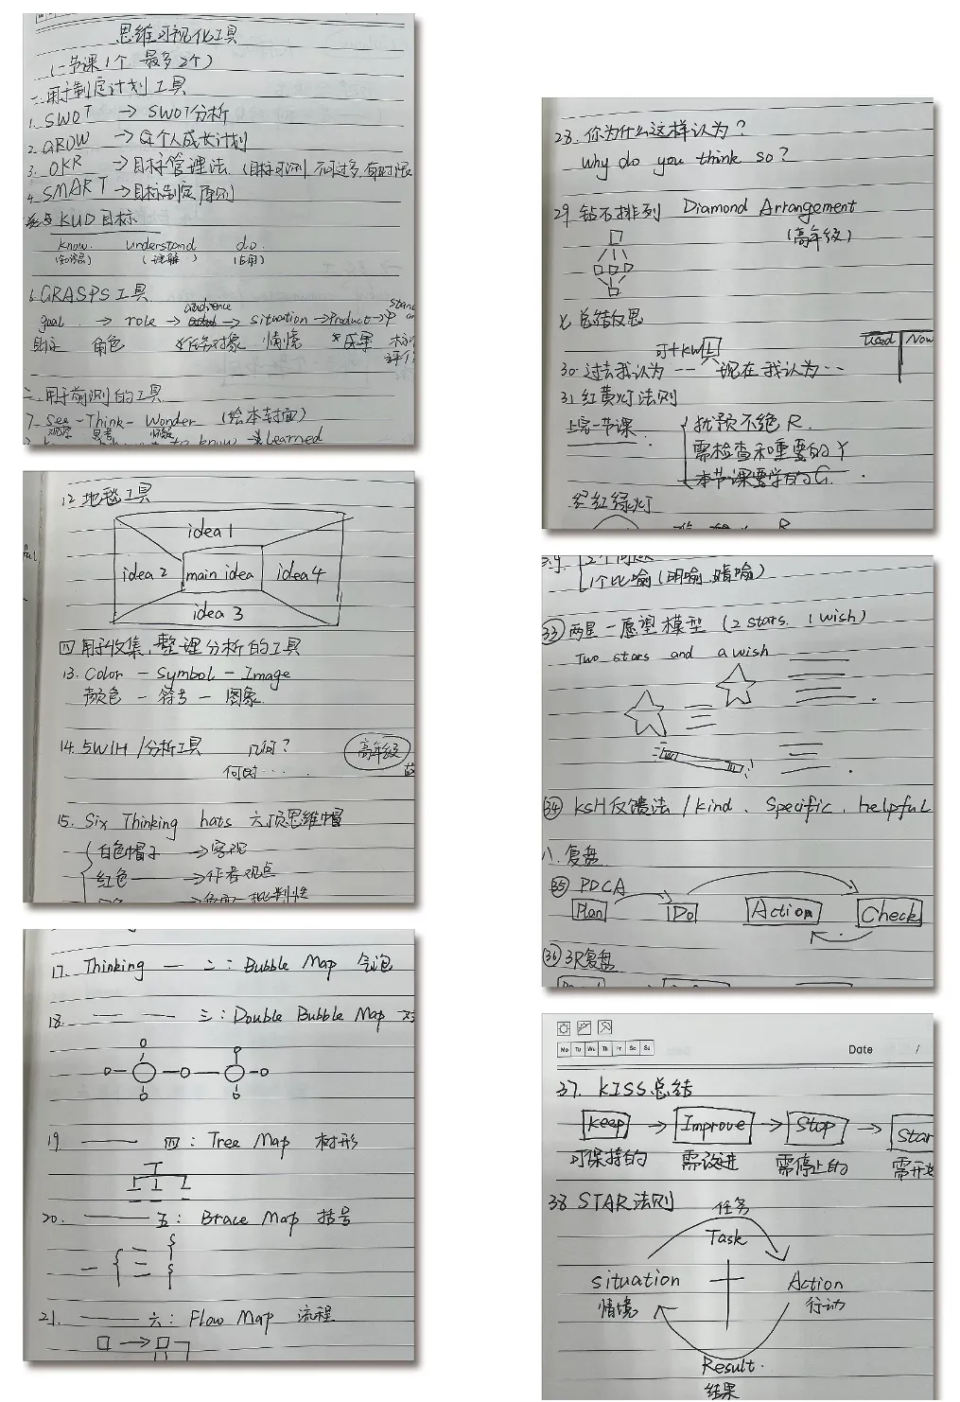 思维可视化工具
(一节课1个 最多2个)
一、用于制定计划工具
1. SWOT → SWOT分析
2. GROW → 个人成长计划
3. OKR → 目标管理法 (目标可测 不过多 有时限
4. SMART → 目标制定原则
KUD目标
know understand do
(知识) (理解) (应用)
6. GRASPS工具
audience
goal → role → → situation → Product →
目标 角色 对象 情境
二、用于前测的工具
7. See - Think - Wonder (绘本封面)
观察 思考
to know → Learned
12. 地毯工具
idea 1
idea 2 main idea idea 4
idea 3
四 用于收集,整理分析的工具
13. Color - Symbol - Image
颜色 - 符号 - 图象
14. 5W1H/分析工具 几何? 高年级
何时······
15. Six Thinking hats 六顶思维帽
白色帽子 → 客观
红色 → 作者观点
批判性
17. Thinking — 二: Bubble Map 气泡
18. — — 三: Double Bubble Map
19 — 四: Tree Map 树形
20. — 五: Brace Map 括号
21. — 六: Flow Map 流程
28. 你为什么这样认为?
why do you think so?
29 钻石排列 Diamond Arrangement
(高年级)
七 总结反思
Used Now
30. 过去我认为 -- 现在我认为··
31. 红黄灯法则
上完一节课 扰预不绝 R.
需检查和重要的 Y
本节课要学的 G.
红绿灯
R
2个问题
1个比喻(明喻 暗喻)
33 两星一愿望模型 (2 stars. 1 wish)
Two stars and a wish
34 KSH反馈法 / kind、Specific、helpful
八.复盘
35 PDCA
Plan Do Action Check
36 3R复盘
Mo Tu We Th Fr Sa Su
Date /
37. KISS总结
Keep → Improve → Stop → Star
可保持的 需改进 需停止的 需开始
38 STAR法则 任务
Task
situation Action
情境 行动
Result.
结果